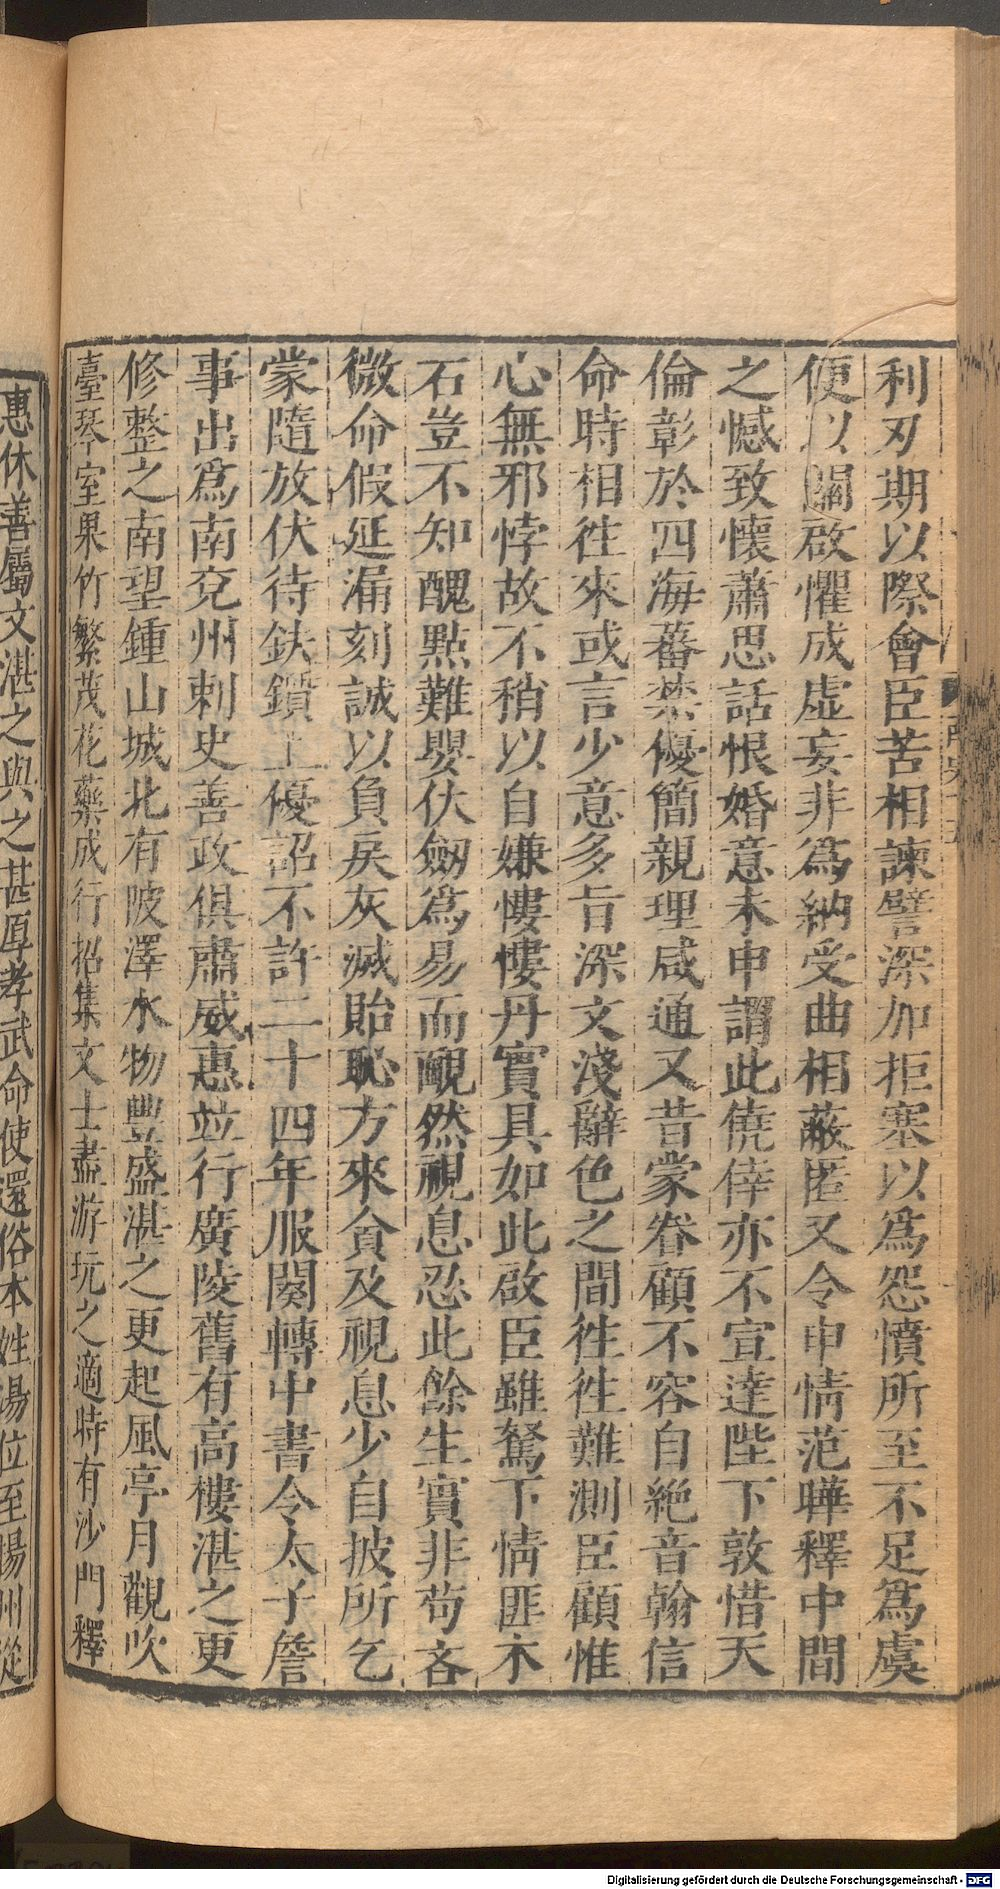 利刃期以際會臣苦相諫譬深加拒塞以爲怨憤所至不足爲虞
便以關啟懼成虛妄非爲納受曲相蔽匿又令申情范曄釋中間
之憾致懷蕭思話恨婚意未申謂此僥倖亦不宣達陛下敦惜天
倫彰於四海蕃禁優簡親理咸通又昔蒙眷顧不容自絶音翰信
命時相徃來或言少意多旨深文淺辭色之間徃徃難測臣顧惟
心無邪悖故不稍以自嫌慺慺丹實具如此啟臣雖駑下情匪木
石豈不知醜點難嬰伏劒爲易而靦然視息忍此餘生實非苟吝
微命假延漏刻誠以負戾灰滅貽恥方來貪及視息少自披所乞
蒙隨放伏待鈇鑕上優詔不許二十四年服闋轉中書令太子詹
事出爲南兗州刺史善政俱肅威惠竝行廣陵舊有高樓湛之更
修整之南望鍾山城北有陂澤水物豐盛湛之更起風亭月觀吹
臺琴室果竹繁茂花藥成行招集文士盡游玩之適時有沙門釋
惠休善屬文湛之與之甚厚孝武命使還俗本姓湯位至揚州從
Digitalisierung gefördert durch die Deutsche Forschungsgemeinschaft - DFG